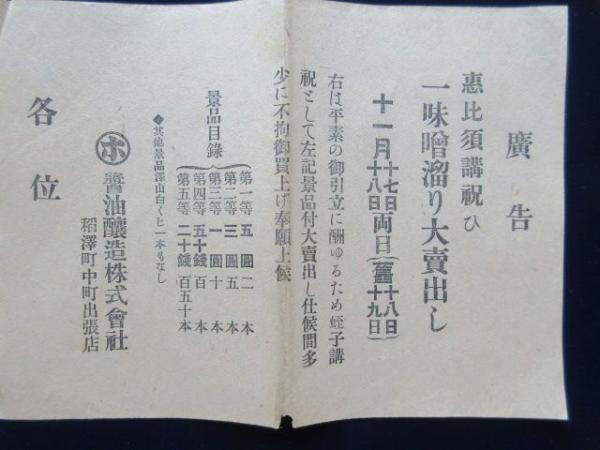 廣告
惠比須講祝ひ
一味噌溜り大賣出し
十一月十七日十八日両日(舊十八日十九日)
右は平素の御引立に酬ゆるため蛭子講
祝として左記景品付大賣出し仕候間多
少に不拘御買上げ奉願上候
景品目錄
第一等 五圓 二本
第二等 三圓 五本
第三等 一圓 十本
第四等 五十錢 百本
第五等 二十錢 百五十本
◆其他景品澤山白くじ一本もなし
ホ醬油釀造株式會社
稻澤町中町出張店
各位